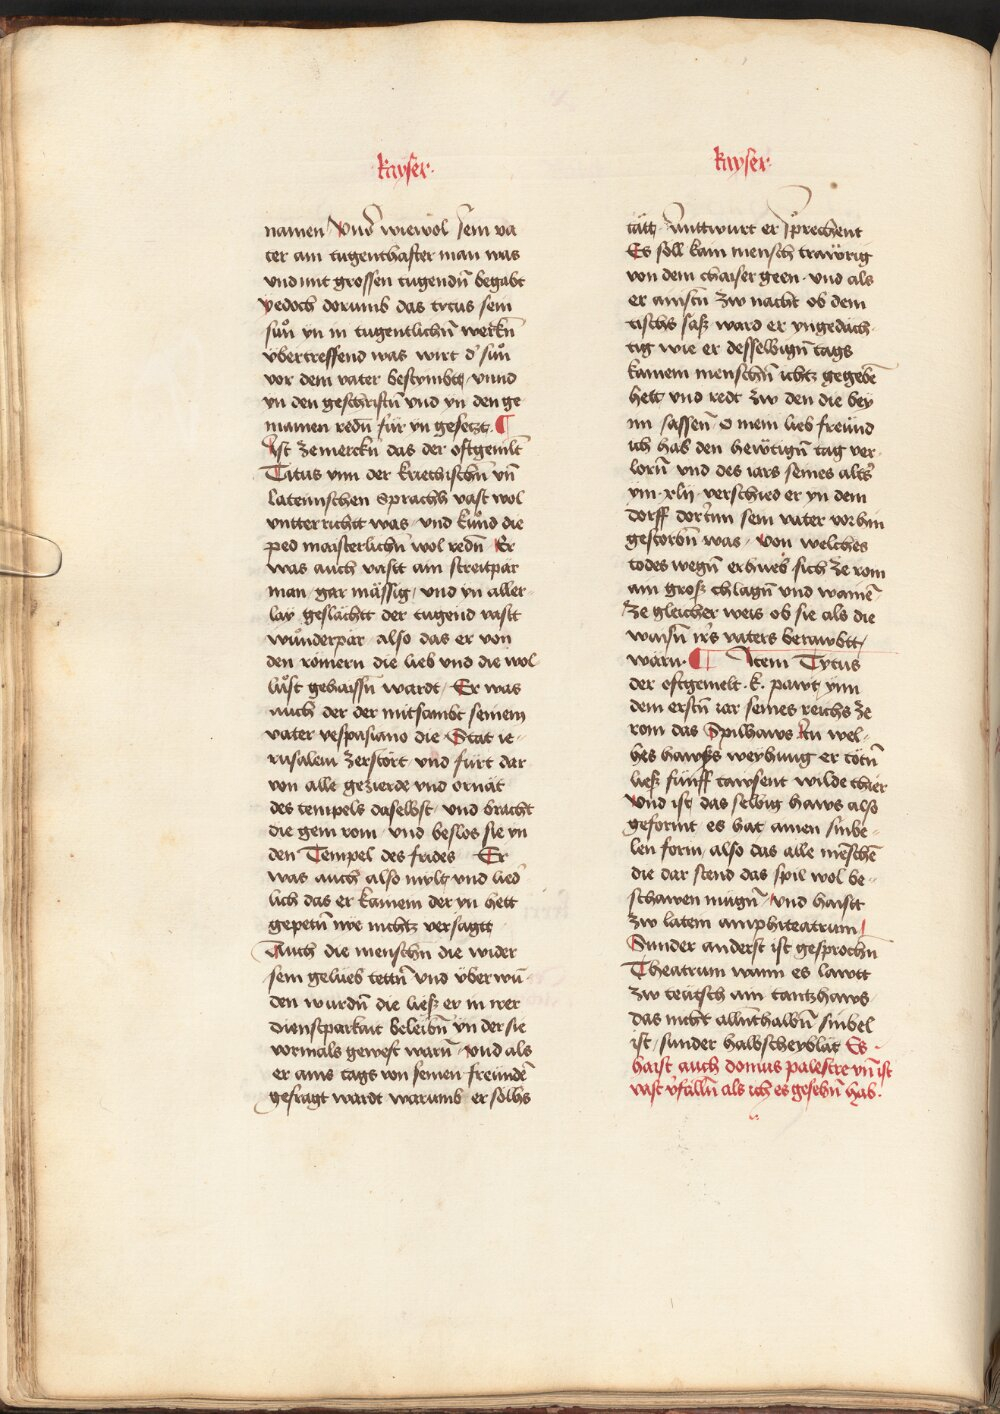 kayser·
namen Vnd wiewol sein va
ter ain tugenthafter man was
vnd mit grossen tugendn̄ begabt
yedoch dorumb das tytus sein
sůn yn in tugentlichn̄ werkn̄
vbertreffend was wirt d' sůn
vor dem vater bestymbt vnnd
yn den geschriftn̄ vnd yn den ge
mainen redn̄ für yn gesetzt ¶
Ist zemerckn̄ das der oftgemlt̄
Titus ynn der kriechischn̄ vn̄
lateinischen Sprachh vast wol
vntterrichtt was / vnd kůnd die
ped maisterlichn̄ wol redn̄ Er
was auch vastt ain streitpar
man / gar mässig / vnd yn aller
lay geslächtt der tugend vastt
wůnderpar / also das er von
den romern die lieb vnd die wol
lůst gehaissn̄ wardt / Er was
auch der der mitsambt seinem
vater vespasiano die Stat ie-
rusalem zerstört vnd fürt dar
von alle gezierde vnd ornät
des tempels daselbst / vnd bracht
die gein rom / vnd beslos sie yn
den Tempel des frides Er
was auch also mylt vnd lied
lich das er kainem der yn hett
gepetn̄ nye nichtz versagtt
Auch die menschn̄ die wider
sein gelueb tettn̄ vnd vberwū
den wurdn̄ die lies er in irer
dienstparkait beleibn̄ yn der sie
vormals gewest warn̄ / vnd als
er ains tags von seinen freunden̄
gefragt wardt warumb er solhs
kayser·
tätt / antwurt er sprechent
Es soll kain mensch trawrig
von dem chaiser geen · vnd als
er ainstn̄ zw nacht ob dem
tischs sass ward er yngedäch
tig wie er desselbign̄ tags
kainem menschn̄ ichtz gegeben̄
hett vnd redt zw den die bey
im sassen̄ O mein lieb freund
ich hab den hewtign̄ tag ver-
lorn̄ vnd des iars seines alt's
ym · xlij · verschied er yn dem
dorff dor'inn sein vater vorhin
gestorbn̄ was / von welches
todes wegn̄ erhueb sich ze rom
ain gross chlagn̄ vnd wainen̄
ze gleicher weis ob sie als die
waisn̄ irs vaters berawbtt /
warn · ¶ Item Tytus
der oftgemelt · k · pawt ynn
dem erstn̄ iar seines reichs ze
rom das Spilhaws In wel-
hes hawss weyhung er tötn̄
liess fünff tawsent wilde thier
vnd ist das selbig haws also
geformt es hat ainen sinbe-
len form / also das alle menschen̄
die dar stend das spil wol be-
schawen mügn̄ vnd haistt
zw latein amphiteatrum /
Sunder anderst ist gesprochn̄
Theatrum wann es lawtt
zw teutsch ain tantzhaws
das nicht allnthalbn̄ sinbel
ist / sunder halbscheyblät Es
haist auch domus palestre vn̄ ist
vast v'falln̄ als ich es gesehn̄ hab ·